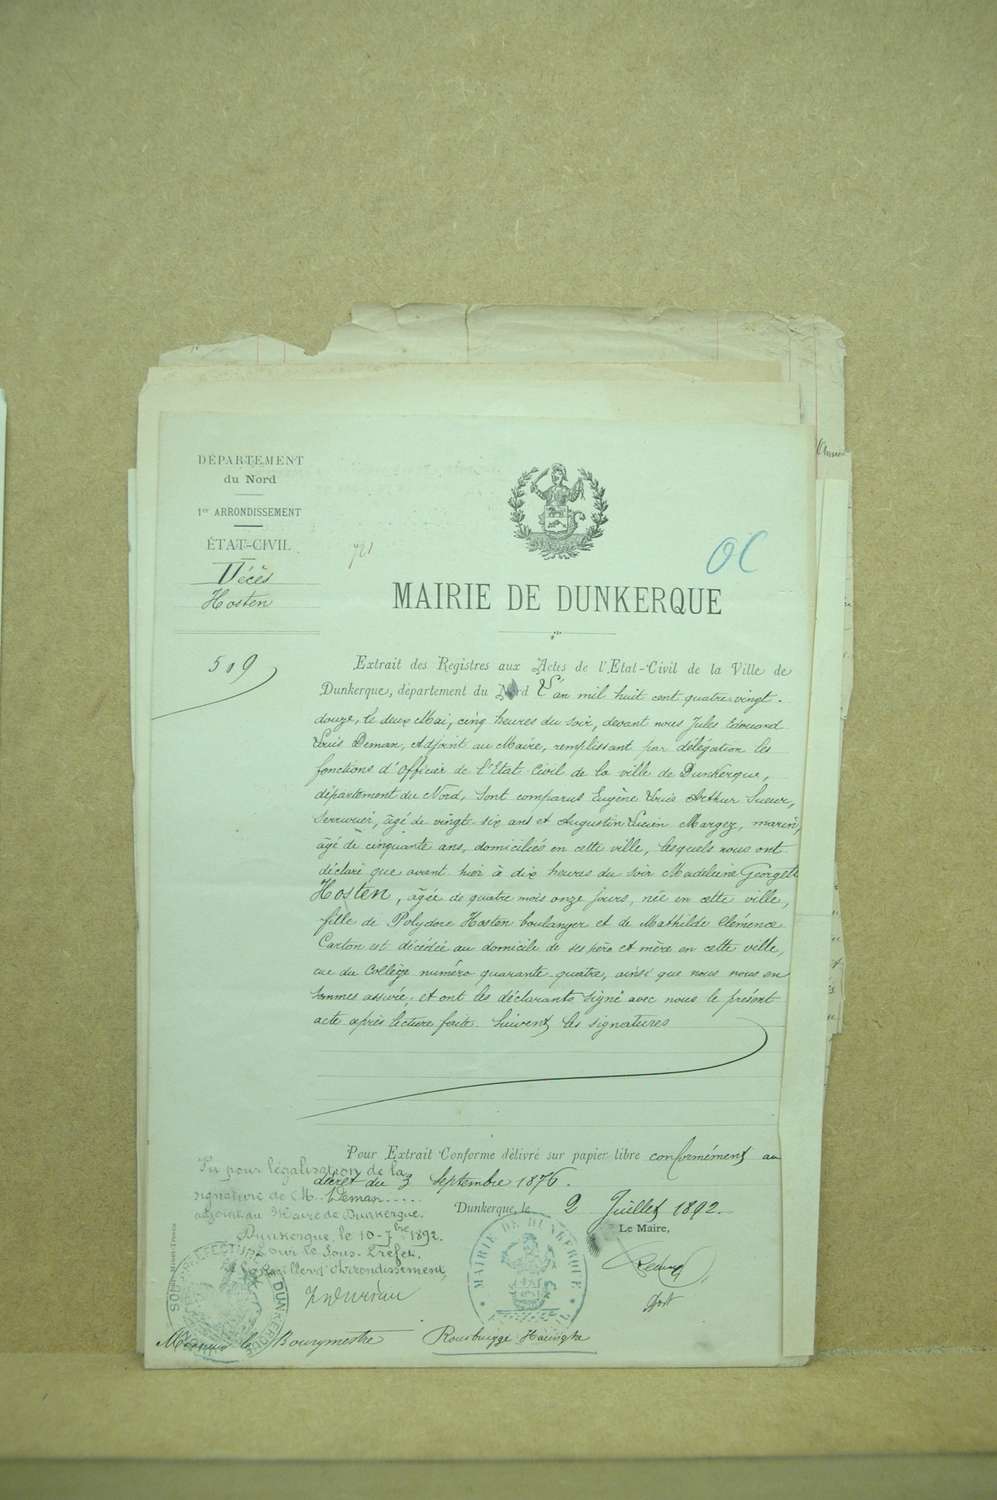 DÉPARTEMENT
du Nord
1er ARRONDISSEMENT
ÉTAT-CIVIL
Décès
Hosten
509
721
OC
MAIRIE DE DUNKERQUE
Extrait des Registres aux Actes de l'Etat-Civil de la Ville de
Dunkerque, département du Nord L'an mil huit cent quatre-vingt-
douze, le deux Mai, cinq heures du soir, devant nous Jules Edouard
Louis Deman, Adjoint au Maire, remplissant par délégation les
fonctions d'Officier de l'Etat Civil de la ville de Dunkerque,
département du Nord, sont comparus Eugène Louis Arthur Sueur,
serrurier, âgé de vingt six ans et Augustin Lucien Margez, marin,
âgé de cinquante ans, domiciliés en cette ville, lesquels nous ont
déclaré que avant hier à dix heures du soir Madeleine Georgette
Hosten, âgée de quatre mois onze jours, née en cette ville,
fille de Polydore Hosten boulanger et de Mathilde Clémence
Carton est décédée au domicile de ses père et mère en cette ville,
rue du Collège numéro quarante-quatre, ainsi que nous nous en
sommes assuré; et ont les déclarants signé avec nous le présent
acte après lecture faite. Suivent les signatures
Pour Extrait Conforme délivré sur papier libre conformément au
décret du 3 Septembre 1876.
Dunkerque, le 2 Juillet 1892.
Le Maire,
Vu pour légalisation de la
signature de M. Deman.....
adjoint au Maire de Dunkerque.
Dunkerque, le 10-7bre 1892.
Pour le Sous-Préfet,
Le Conseiller d'Arrondissement,
MAIRIE DE DUNKERQUE
SOUS-PRÉFECTURE DUNKERQUE
Monsieur le Bourgmestre Rousbrugge Haringhe